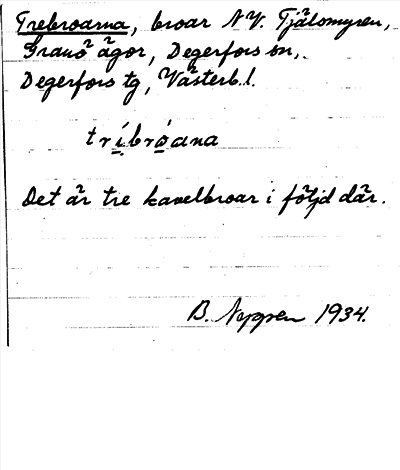 Trebroarna, broar N.V. Tjälsmyren,
Granö ägor, Degerfors sn,
Degerfors tg, Västerb.l.
tríbróana
Det är tre kavelbroar i följd där.
B. 1934.